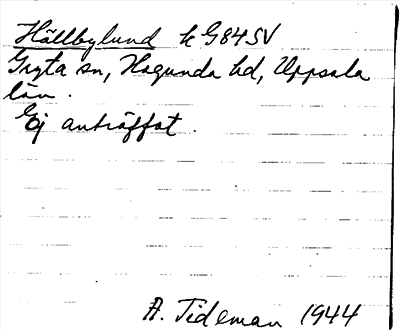 Hällbylund k G84SV
Gryta sn, Hagunda hd, Uppsala
län.
Ej anträffat.
A. Tideman 1944